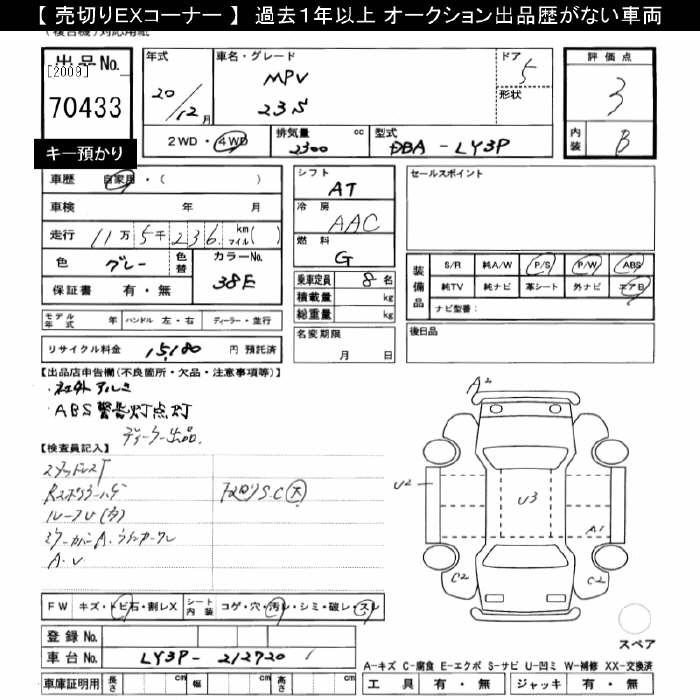 【 売切りEXコーナー 】 過去1年以上 オークション出品歴がない車両
出品No.
[2009]
70433
キー預かり
年式
20/12月
車名・グレード
MPV
23S
ドア
5
形状
評価点
3
内装
B
2WD・4WD
排気量 cc
2300
型式
DBA - LY3P
車歴 自家用・( )
車検 年 月
走行 11万5千236 km マイル( )
色 グレー 色替
カラーNo.
38E
保証書 有・無
シフト
AT
冷房
AAC
燃料
G
乗車定員 8 名
積載量 kg
総重量 kg
セールスポイント
装備品
S/R 純A/W P/S P/W ABS
純TV 純ナビ 革シート 外ナビ エアB
ナビ型番:
モデル年式 年 ハンドル 左・右 ディーラー・並行
リサイクル料金 15,180 円 預託済
名変期限
月 日
後日品
【出品店申告欄(不良箇所・欠品・注意事項等)】
・社外アルミ
・ABS警告灯点灯
ディーラー出品.
【検査員記入】
スタッドレスT
ルーフU(有)
A.U
A2
U2
U3
A1
C2
C2
スペア
FW キズ・トビ石・割レX シート内装 コゲ・穴・汚レ・シミ・破レ・スレ
登録No.
車台No. LY3P - 212720
車庫証明用 長さ cm 幅 cm 高さ cm
A-キズ C-腐食 E-エクボ S-サビ U-凹ミ W-補修 XX-交換済
工具 有・無 ジャッキ 有・無